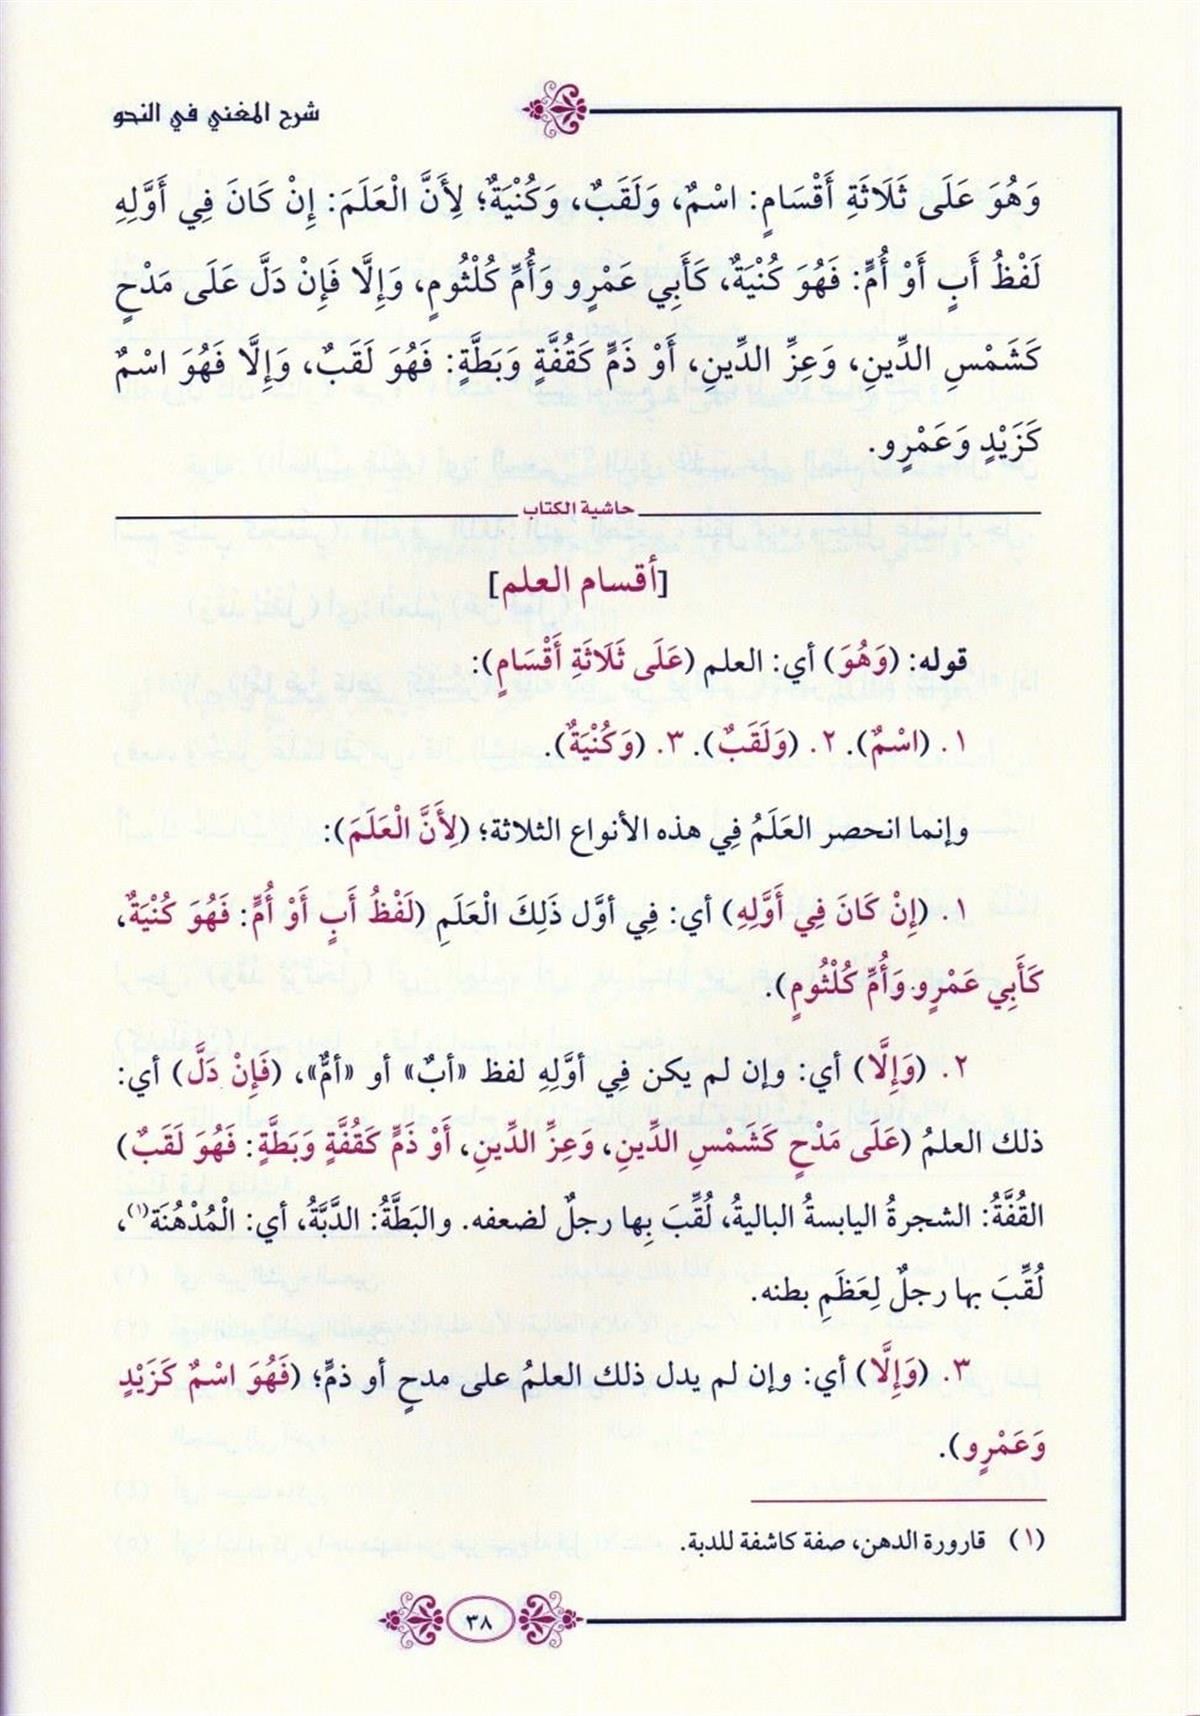 شرح المغني في النحو
وَهُوَ عَلَى ثَلَاثَةِ أَقْسَامٍ: اسْمٌ، وَلَقَبٌ، وَكُنْيَةٌ؛ لِأَنَّ الْعَلَمَ: إِنْ كَانَ فِي أَوَّلِهِ
لَفْظُ أَبٍ أَوْ أُمٍّ: فَهُوَ كُنْيَةٌ، كَأَبِي عَمْرٍو وَأُمِّ كُلْثُومٍ، وَإِلَّا فَإِنْ دَلَّ عَلَى مَدْحٍ
كَشَمْسِ الدِّينِ، وَعِزِّ الدِّينِ، أَوْ ذَمٍّ كَقُفَّةٍ وَبَطَّةٍ: فَهُوَ لَقَبٌ، وَإِلَّا فَهُوَ اسْمٌ
كَزَيْدٍ وَعَمْرٍو.
حاشية الكتاب
[أقسام العلم]
قوله: (وَهُوَ) أي: العلم (عَلَى ثَلَاثَةِ أَقْسَامٍ):
١. (اسْمٌ). ٢. (وَلَقَبٌ). ٣. (وَكُنْيَةٌ).
وإنما انحصر العَلَمُ فِي هذه الأنواع الثلاثة؛ (لِأَنَّ الْعَلَمَ):
١. (إِنْ كَانَ فِي أَوَّلِهِ) أي: فِي أوَّل ذَلِكَ الْعَلَمِ (لَفْظُ أَبٍ أَوْ أُمٍّ: فَهُوَ كُنْيَةٌ،
كَأَبِي عَمْرٍو وَأُمِّ كُلْثُومٍ).
٢. (وَإِلَّا) أي: وإن لم يكن فِي أوَّلِهِ لفظ «أبٌ» أو «أمٌّ»، (فَإِنْ دَلَّ) أي:
ذلك العلمُ (عَلَى مَدْحٍ كَشَمْسِ الدِّينِ، وَعِزِّ الدِّينِ، أَوْ ذَمٍّ كَقُفَّةٍ وَبَطَّةٍ: فَهُوَ لَقَبٌ)
القُفَّةُ: الشجرةُ اليابسةُ الباليةُ، لُقِّبَ بِها رجلٌ لضعفه. والبَطَّةُ: الدَّبَّةُ، أي: الْمُدْهُنَة(١)،
لُقِّبَ بها رجلٌ لِعِظَمِ بطنه.
٣. (وَإِلَّا) أي: وإن لم يدل ذلك العلمُ على مدحٍ أو ذمٍّ؛ (فَهُوَ اسْمٌ كَزَيْدٍ
وَعَمْرٍو).
(١) قارورة الدهن، صفة كاشفة للدبة.
٣٨